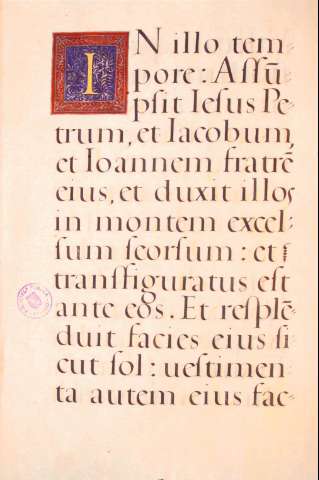 IN illo tem⸗
pore: Assū⸗
psit Iesus Pe⸗
trum, et Iacobum,
et Ioannem fratrē
eius, et duxit illos
in montem excel⸗
sum seorsum: et
transfiguratus est
ante eos. Et resplē⸗
duit facies eius si
cut sol: uestimen⸗
ta autem eius fac⸗